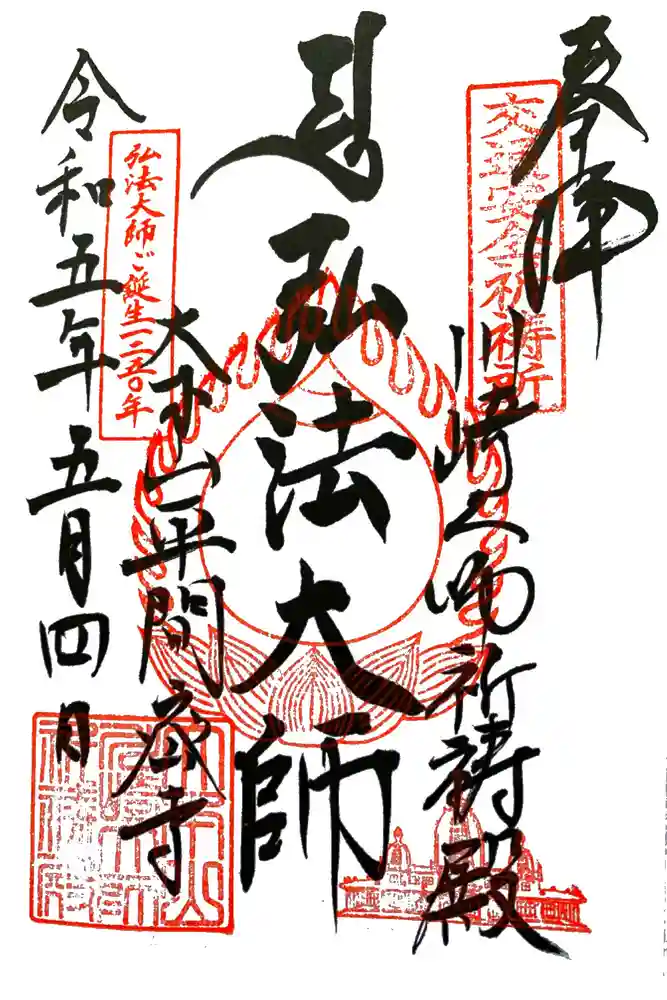 奉拝
交通安全祈祷所
川崎大師祈祷殿
弘法大師
大本山平間寺
弘法大師ご誕生一二五〇年
令和五年五月四日